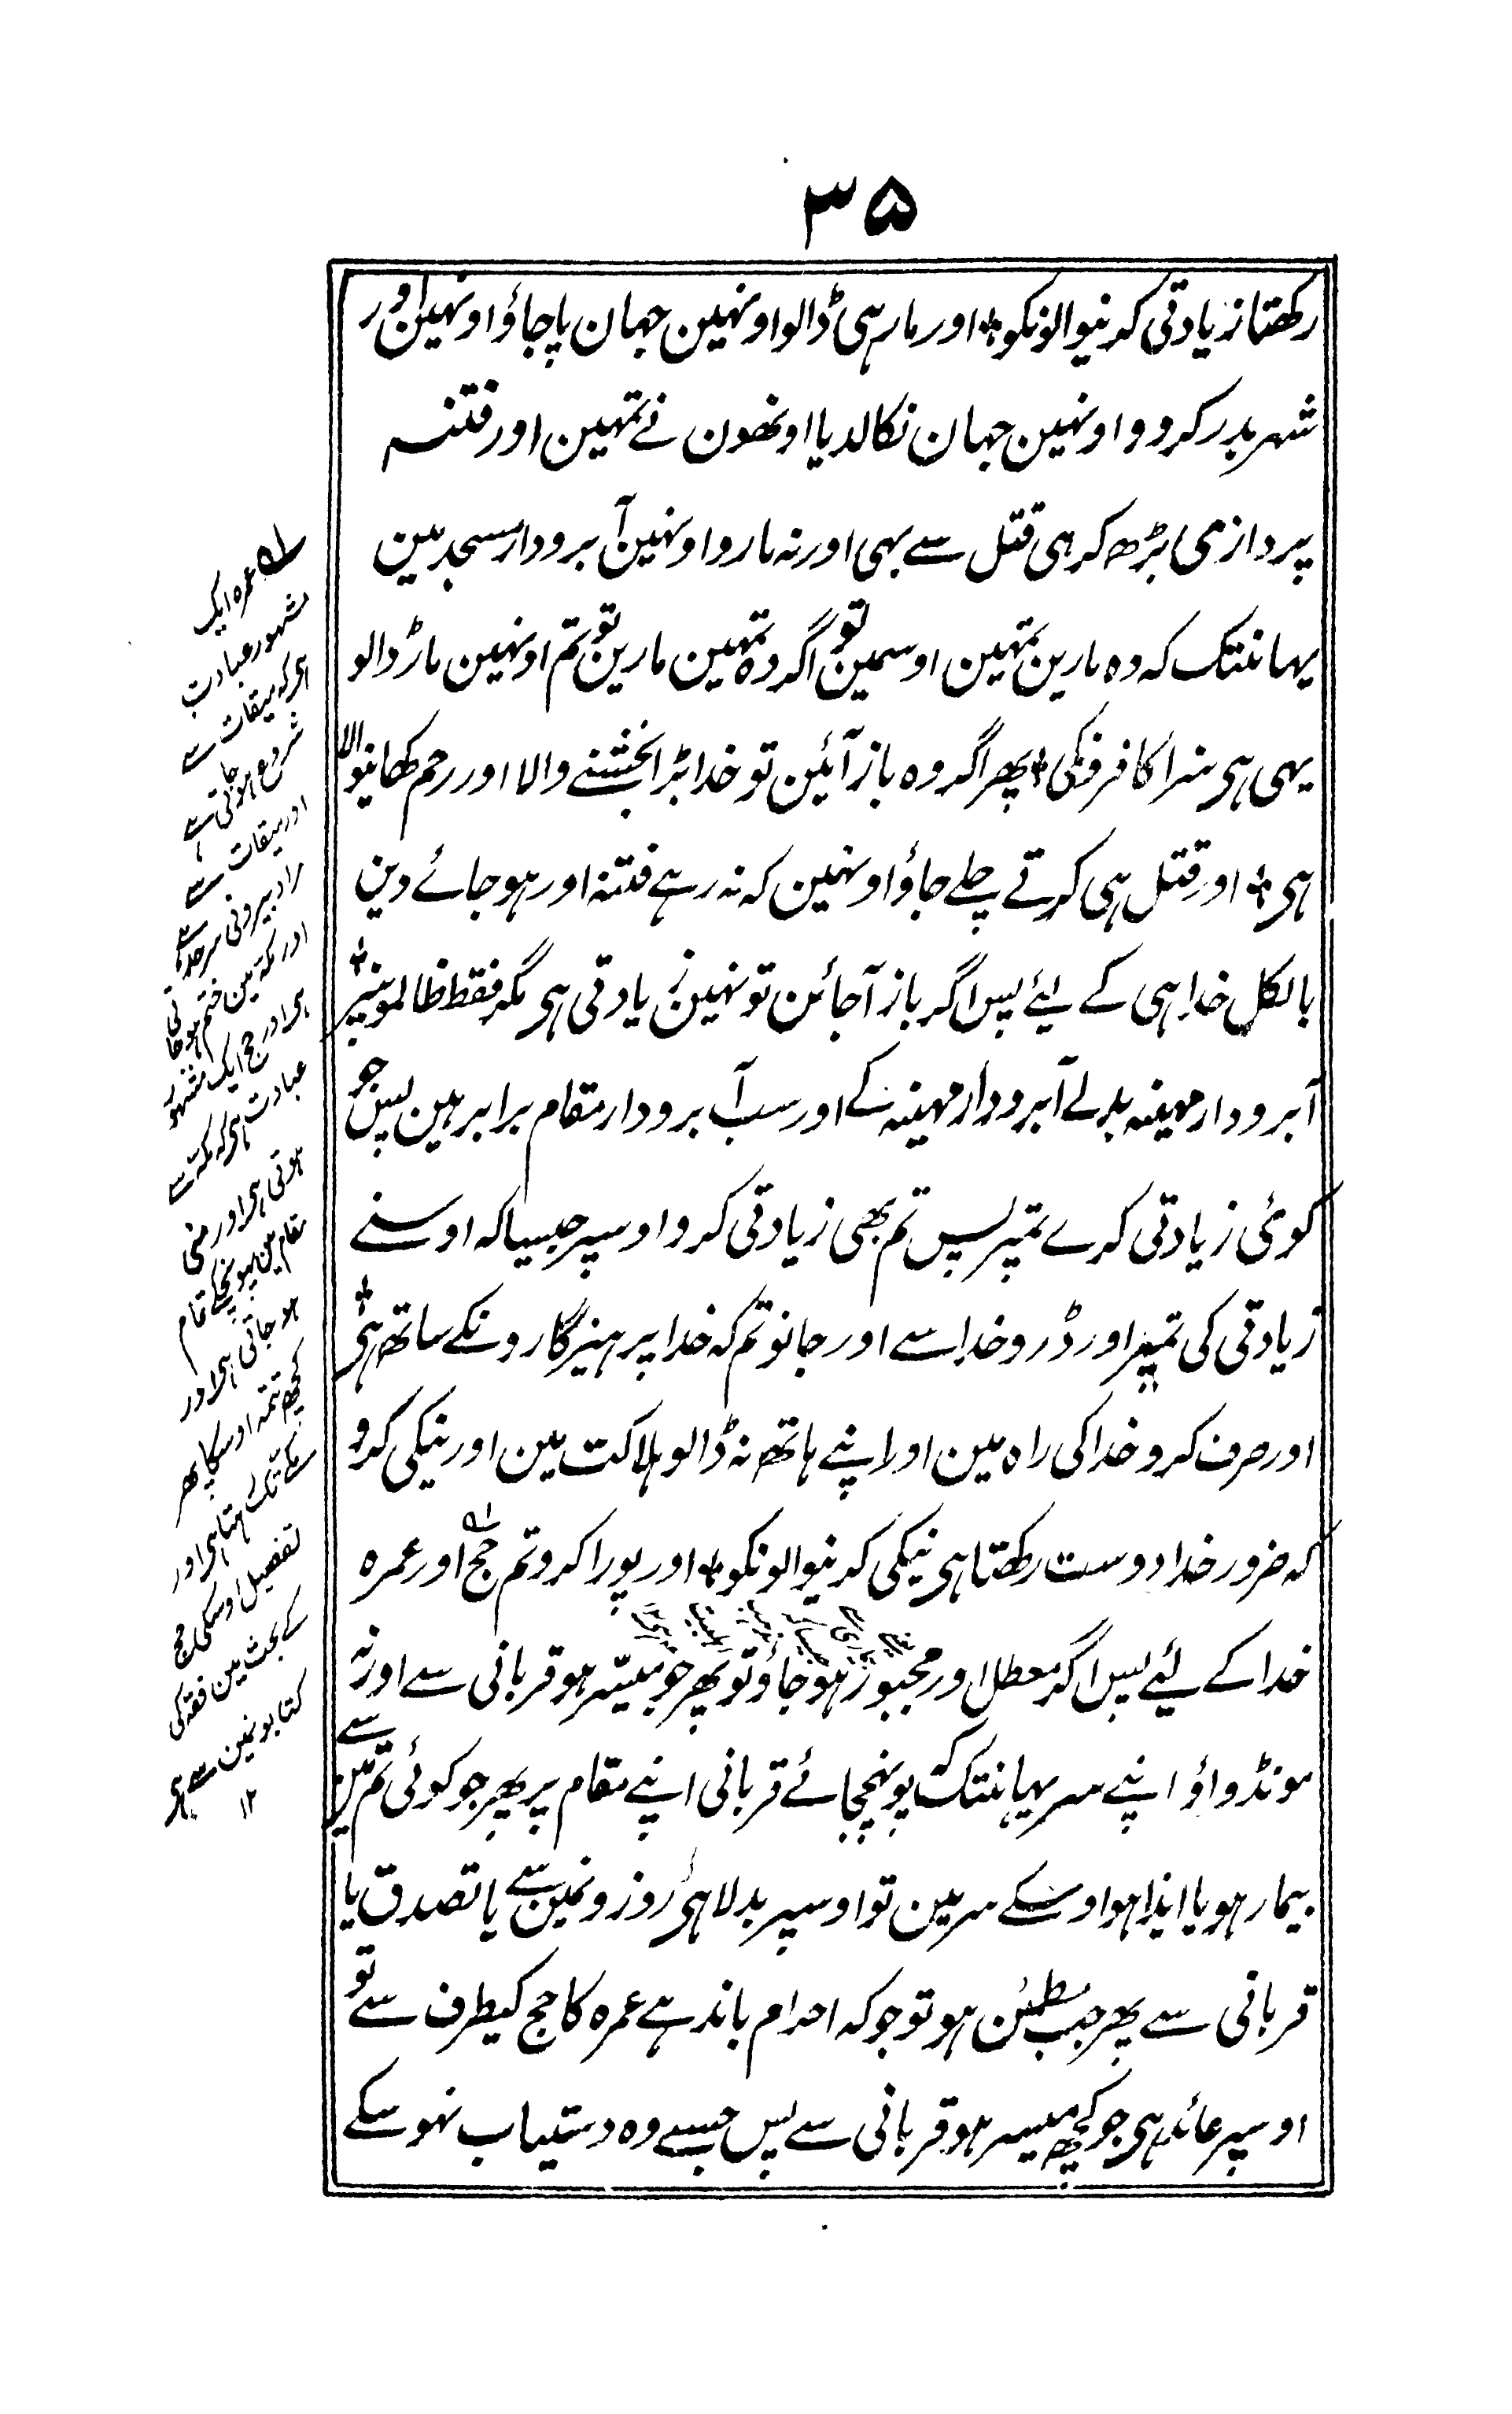 ۳۵
رکھتا زیادتی کرنیوالونکو ؞ اور مار ہی ڈالو اونہین جہان پاجاؤ اونہین اور
شہر بدر کردو اونہین جہان نکالدیا اونھون نے تمہین اور فتنہ
پردازی بڑھ کر ہی قتل سے بہی اور نہ مارو اونہین آبرودار مسجد مین
یہانتک کہ وہ مارین تمہین اوسمین تو اگر وہ تمہین مارین تو تم اونہین مار ڈالو
یہی ہی سزا کافرونکی ؞ پھر اگر وہ باز آئین تو خدا بڑا بخشنے والا اور رحم کھانیوالا
ہی ؞ اور قتل ہی کرتے چلے جاؤ اونہین کہ نہ رہے فتنہ اور ہو جائے دین
بالکل خدا ہی کے لئے پس اگر باز آجائن تو نہین زیادتی ہی مگر فقط ظالمونپر ؞
آبرودار مہینہ بدلے آبرودار مہینہ کے اور سب آبرودار مقام برابر ہین پس جو
کوئی زیادتی کرے تمپر پس تم بھی زیادتی کرو اوسپر جیسا کہ اوسنے
زیادتی کی تمپر اور ڈرو خدا سے اور جانو تم کہ خدا پرہیزگارونکے ساتھ ہی ؞
اور صرف کرو خدا کی راہ مین اور اپنے ہاتھ نہ ڈالو ہلاکت مین اور نیکی کرو
کہ ضرور خدا دوست رکھتا ہی نیکی کرنیوالونکو ؞ اور پورا کرو تم حج اور عمرہ
خدا کے لئے پس اگر معطل اور مجبور ہو جاؤ تو پھر جو میسّر ہو قربانی سے اور نہ
مونڈواؤ اپنے سر یہانتک کہ پونہچجائے قربانی اپنے مقام پر پھر جو کوئی تم مین سے
بیمار ہو یا ایذا ہو اوسکے سر مین تو اوسپر بدلا ہی روزونمین سے یا تصدق یا
قربانی سے پھر جب مطمئن ہو تو جو کہ احرام باندہے عمرہ کا حج کیطرف سے تو
اوسپر عائد ہی جو کچھ میسر ہو قربانی سے پس جسے وہ دستیاب نہوسکے
لہ عمرہ ایک
مشہور عبادت
ہی کہ میقات سے
شروع ہوجاتی ہے
اور میقات سے
مراد بیرونی سرحد ہے
اور مکہ مین ختم ہوجاتی
ہی اور حج ایک مشہور
عبادت ہی کہ مکہ سے
ہوتی ہی اور منی
مقام مین پہونچکے تمام
ہو جاتی ہی اور
کچھ تتمہ اوسکا پھر
مکے تک رہتا ہی اور
تفصیل اوسکی حج
کے بحث مین فقہ کی
کتابونمین سے ہی
۱۲